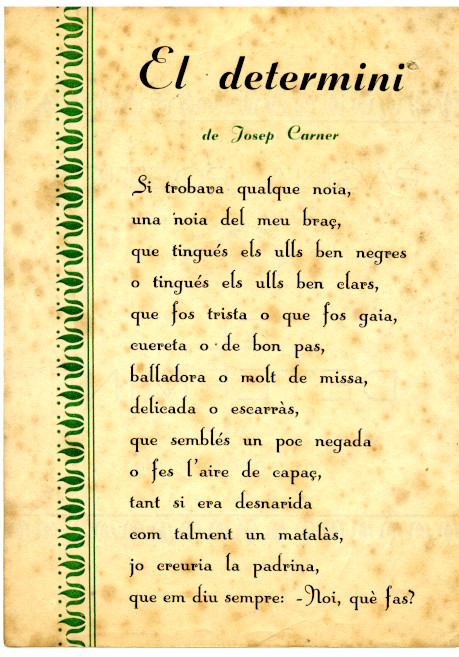 El determini
de Josep Carner
Si trobava qualque noia,
una noia del meu braç,
que tingués els ulls ben negres
o tingués els ulls ben clars,
que fos trista o que fos gaia,
cuereta o de bon pas,
balladora o molt de missa,
delicada o escarràs,
que semblés un poc negada
o fes l'aire de capaç,
tant si era desnarida
com talment un matalàs,
jo creuria la padrina,
que em diu sempre: -Noi, què fas?